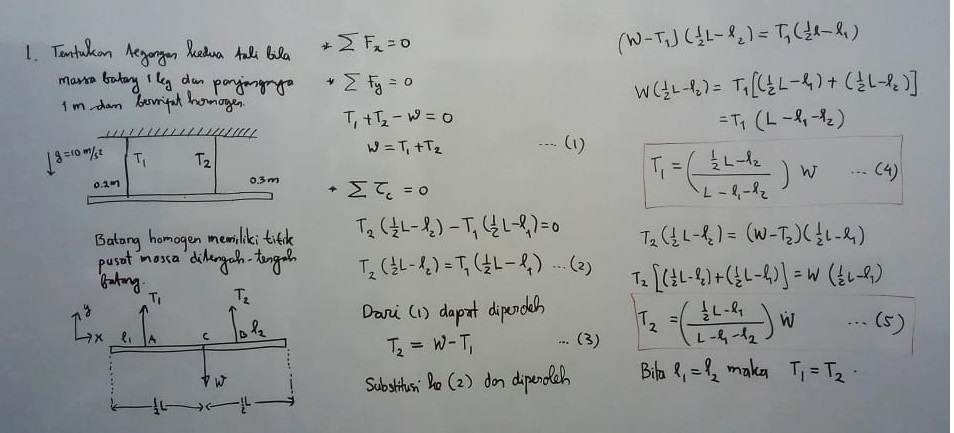 1. Tentukan tegangan kedua tali bila
massa batang 1 kg dan panjangnya
1 m dan bersifat homogen.
g=10 m/s²
T₁
T₂
0.2m
0.3m
Batang homogen memiliki titik
pusat massa ditengah-tengah
batang.
y
x
T₁
T₂
l₁
A
C
B
l₂
W
½L
½L
* ∑ Fₓ = 0
* ∑ Fy = 0
T₁ + T₂ - W = 0
W = T₁ + T₂ ... (1)
* ∑ τc = 0
T₂ (½L - l₂) - T₁ (½L - l₁) = 0
T₂ (½L - l₂) = T₁ (½L - l₁) ... (2)
Dari (1) dapat diperoleh
T₂ = W - T₁ ... (3)
Substitusi ke (2) dan diperoleh
(W - T₁) (½L - l₂) = T₁ (½l - l₁)
W(½L - l₂) = T₁ [(½L - l₁) + (½L - l₂)]
= T₁ (L - l₁ - l₂)
T₁ = (½L - l₂ / L - l₁ - l₂) W ... (4)
T₂ (½L - l₂) = (W - T₂)(½L - l₁)
T₂ [(½L - l₂) + (½L - l₁)] = W (½L - l₁)
T₂ = (½L - l₁ / L - l₁ - l₂) W ... (5)
Bila l₁ = l₂ maka T₁ = T₂.